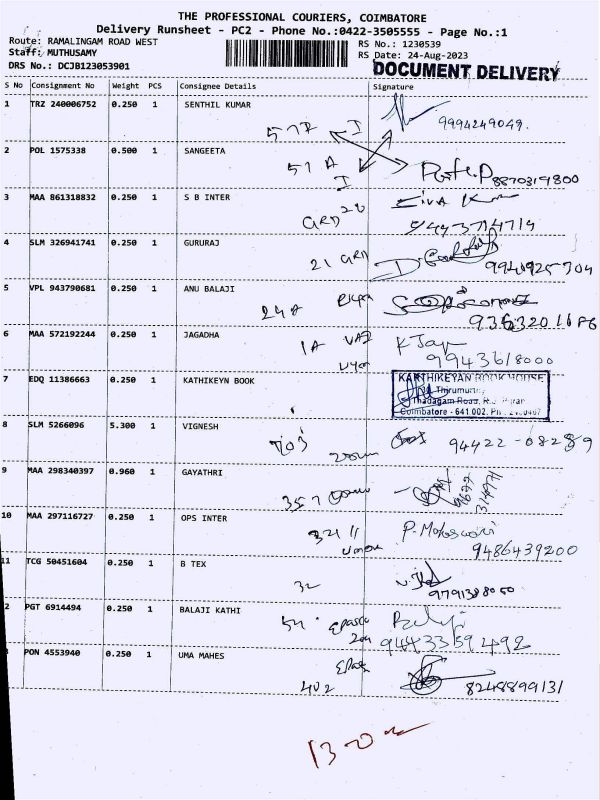 THE PROFESSIONAL COURIERS, COIMBATORE
Delivery Runsheet - PC2 - Phone No.:0422-3505555 - Page No.:1
Route: RAMALINGAM ROAD WEST RS No.: 1230539
Staff: MUTHUSAMY RS Date: 24-Aug-2023
DRS No.: DCJB123053901 DOCUMENT DELIVERY
S No Consignment No Weight PCS Consignee Details Signature
1 TRZ 240006752 0.250 1 SENTHIL KUMAR
9994249049.
2 POL 1575338 0.500 1 SANGEETA
57 A
I 8870319800
3 MAA 861318832 0.250 1 S B INTER
GRD 9443714714
4 SLM 326941741 0.250 1 GURURAJ
21 GRD 9941925704
5 VPL 943790681 0.250 1 ANU BALAJI
24A
6 MAA 572192244 0.250 1 JAGADHA
1A 9943618000
7 EDQ 11386663 0.250 1 KATHIKEYN BOOK KARTHIKEYAN BOOK HOUSE
Thadagam Road, R.S. Puram
Coimbatore - 641 002.
8 SLM 5266096 5.300 1 VIGNESH
703 94422-08289
9 MAA 298340397 0.960 1 GAYATHRI
357
10 MAA 297116727 0.250 1 OPS INTER
9486439200
11 TCG 50451604 0.250 1 B TEX
32 9791388050
2 PGT 6914494 0.250 1 BALAJI KATHI
9443359492
PON 4553940 0.250 1 UMA MAHES
402 8248899131